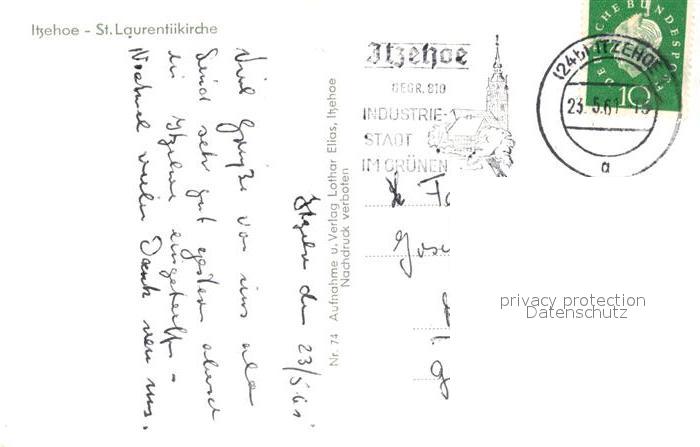 Itzehoe - St. Laurentiikirche
Itzehoe
GEGR. 810
INDUSTRIE-
STADT
IM GRÜNEN
DEUTSCHE BUNDESPOST
10
(24b) ITZEHOE
23.5.61
a
Itzehoe den 23/5.61
Viel Grüße von uns alle
Sind sehr gut gestern abend
in Itzehoe eingetroffen -
Nochmal vielen Dank von uns.
Nr. 74 Aufnahme u. Verlag Lothar Elias, Itzehoe
Nachdruck verboten
privacy protection
Datenschutz